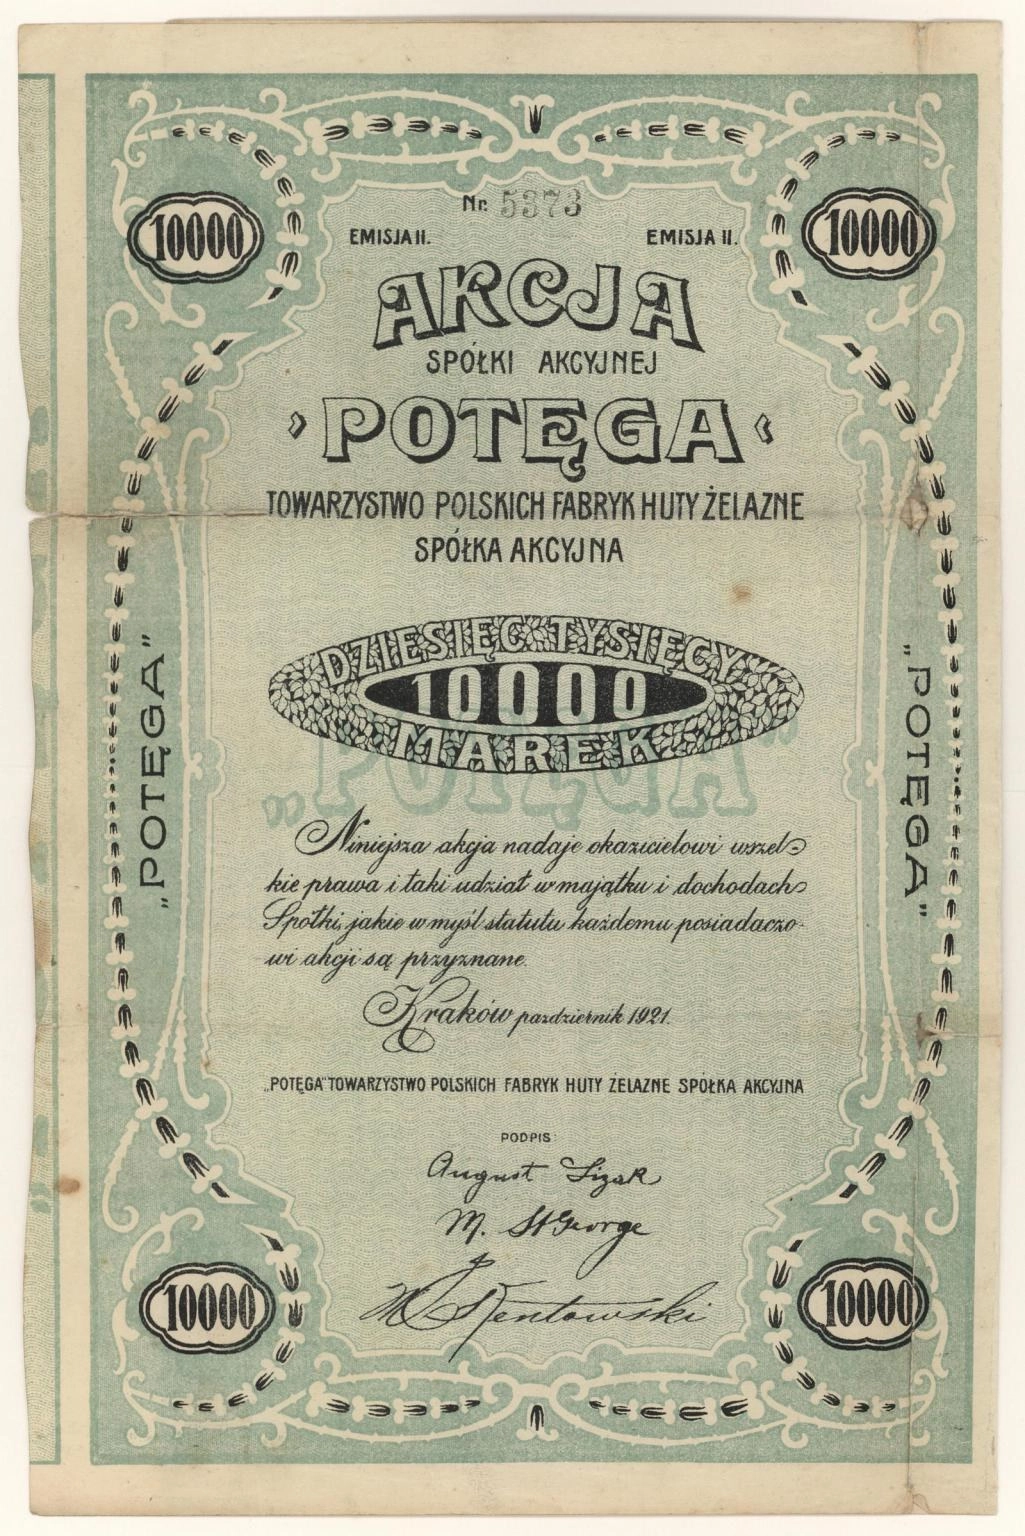 10000
10000
Nr. 5373
EMISJA II.
EMISJA II.
AKCJA
SPÓŁKI AKCYJNEJ
POTĘGA
TOWARZYSTWO POLSKICH FABRYK HUTY ŻELAZNE
SPÓŁKA AKCYJNA
DZIESIĘĆ TYSIĘCY
10000
MAREK
„POTĘGA”
„POTĘGA”
„POTĘGA”
Niniejsza akcja nadaje okazicielowi wszel-
kie prawa i taki udział w majątku i dochodach
Spółki, jakie w myśl statutu każdemu posiadaczo-
wi akcji są przyznane.
Kraków pazdziernik 1921.
„POTĘGA” TOWARZYSTWO POLSKICH FABRYK HUTY ŻELAZNE SPÓŁKA AKCYJNA
PODPIS:
August Lizak
M. StGeorge
10000
10000